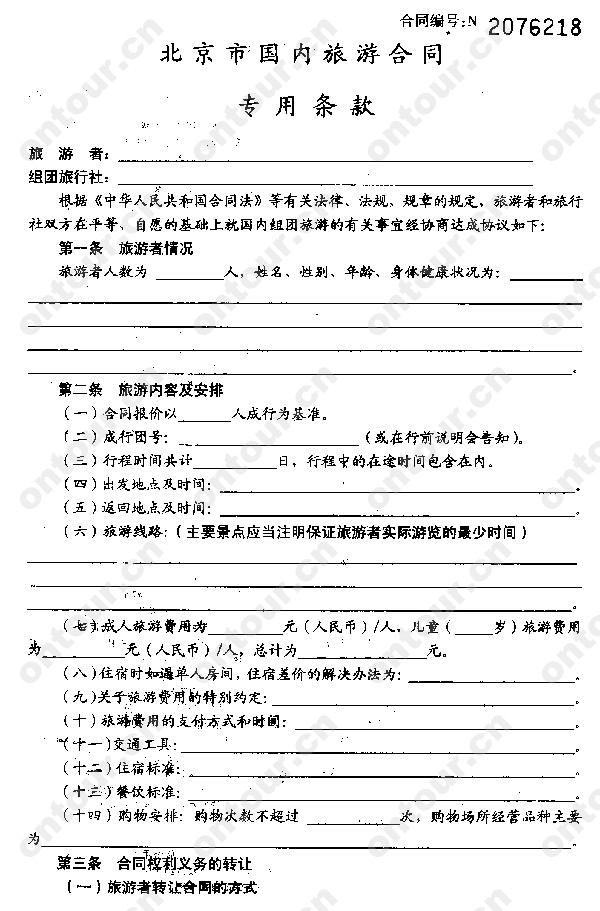 合同编号:N 2076218
北京市国内旅游合同
专用条款
旅游者:
组团旅行社:
根据《中华人民共和国合同法》等有关法律、法规、规章的规定，旅游者和旅行
社双方在平等、自愿的基础上就国内组团旅游的有关事宜经协商达成协议如下:
第一条 旅游者情况
旅游者人数为 人，姓名、性别、年龄、身体健康状况为:
。
第二条 旅游内容及安排
(一)合同报价以 人成行为基准。
(二)成行团号: (或在行前说明会告知)。
(三)行程时间共计 日，行程中的在途时间包含在内。
(四)出发地点及时间: 。
(五)返回地点及时间: 。
(六)旅游线路:(主要景点应当注明保证旅游者实际游览的最少时间)
。
(七)成人旅游费用为 元(人民币)/人，儿童( 岁)旅游费用
为 元(人民币)/人，总计为 元。
(八)住宿时如遇单人房间，住宿差价的解决办法为: 。
(九)关于旅游费用的特别约定: 。
(十)旅游费用的支付方式和时间: 。
(十一)交通工具: 。
(十二)住宿标准: 。
(十三)餐饮标准: 。
(十四)购物安排: 购物次数不超过 次，购物场所经营品种主要
为 。
第三条 合同权利义务的转让
(一)旅游者转让合同的方式
ontour.cn